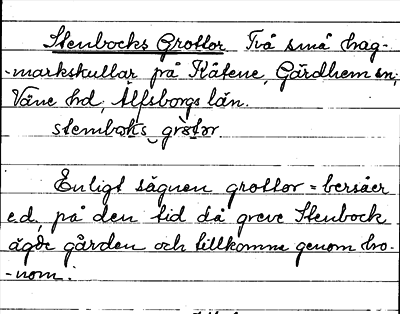 Stenbocks Grottor Två små hag-
-markskullar på Kåtene, Gärdhem sn,
Väne hd, Älfsborgs län.
stembåks gròtor
Enligt sägnen grottor = bersåer
e.d, på den tid då greve Stenbock
ägde gården och tillkomna genom ho-
-nom.